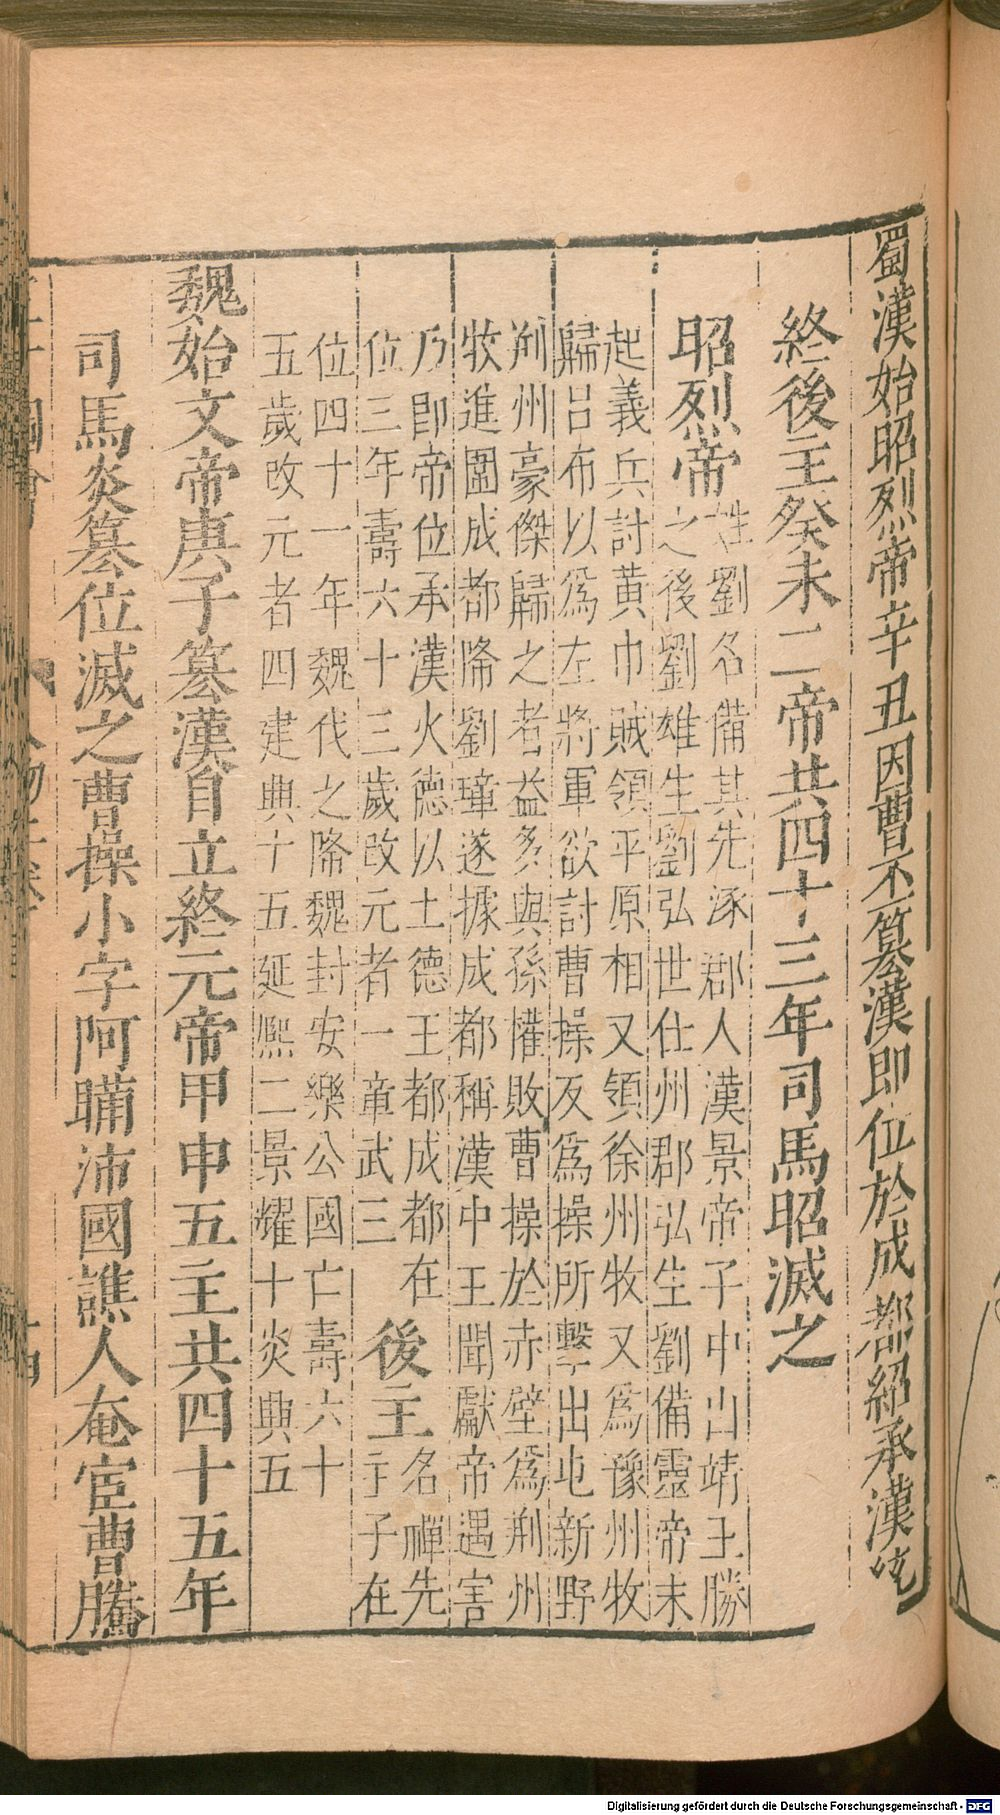 蜀漢始昭烈帝辛丑因曹丕簒漢即位於成都紹承漢統
終後主癸未二帝共四十三年司馬昭滅之
昭烈帝
姓劉名備其先涿郡人漢景帝子中山靖王勝
之後劉雄生劉弘世仕州郡弘生劉備靈帝末
起義兵討黃巾賊領平原相又領徐州牧又爲豫州牧
歸呂布以爲左將軍欲討曹操反爲操所擊出屯新野
荆州豪傑歸之者益多與孫權敗曹操於赤壁爲荆州
牧進圍成都降劉璋遂據成都稱漢中王聞獻帝遇害
乃即帝位承漢火德以土德王都成都在
位三年壽六十三歲改元者一章武三
後主
名禪先
主子在
位四十一年魏伐之降魏封安樂公國亡壽六十
五歲改元者四建興十五延熈二景耀十炎興五
魏始文帝庚子簒漢自立終元帝甲申五主共四十五年
司馬炎簒位滅之曹操小字阿瞞沛國譙人奄宦曹騰